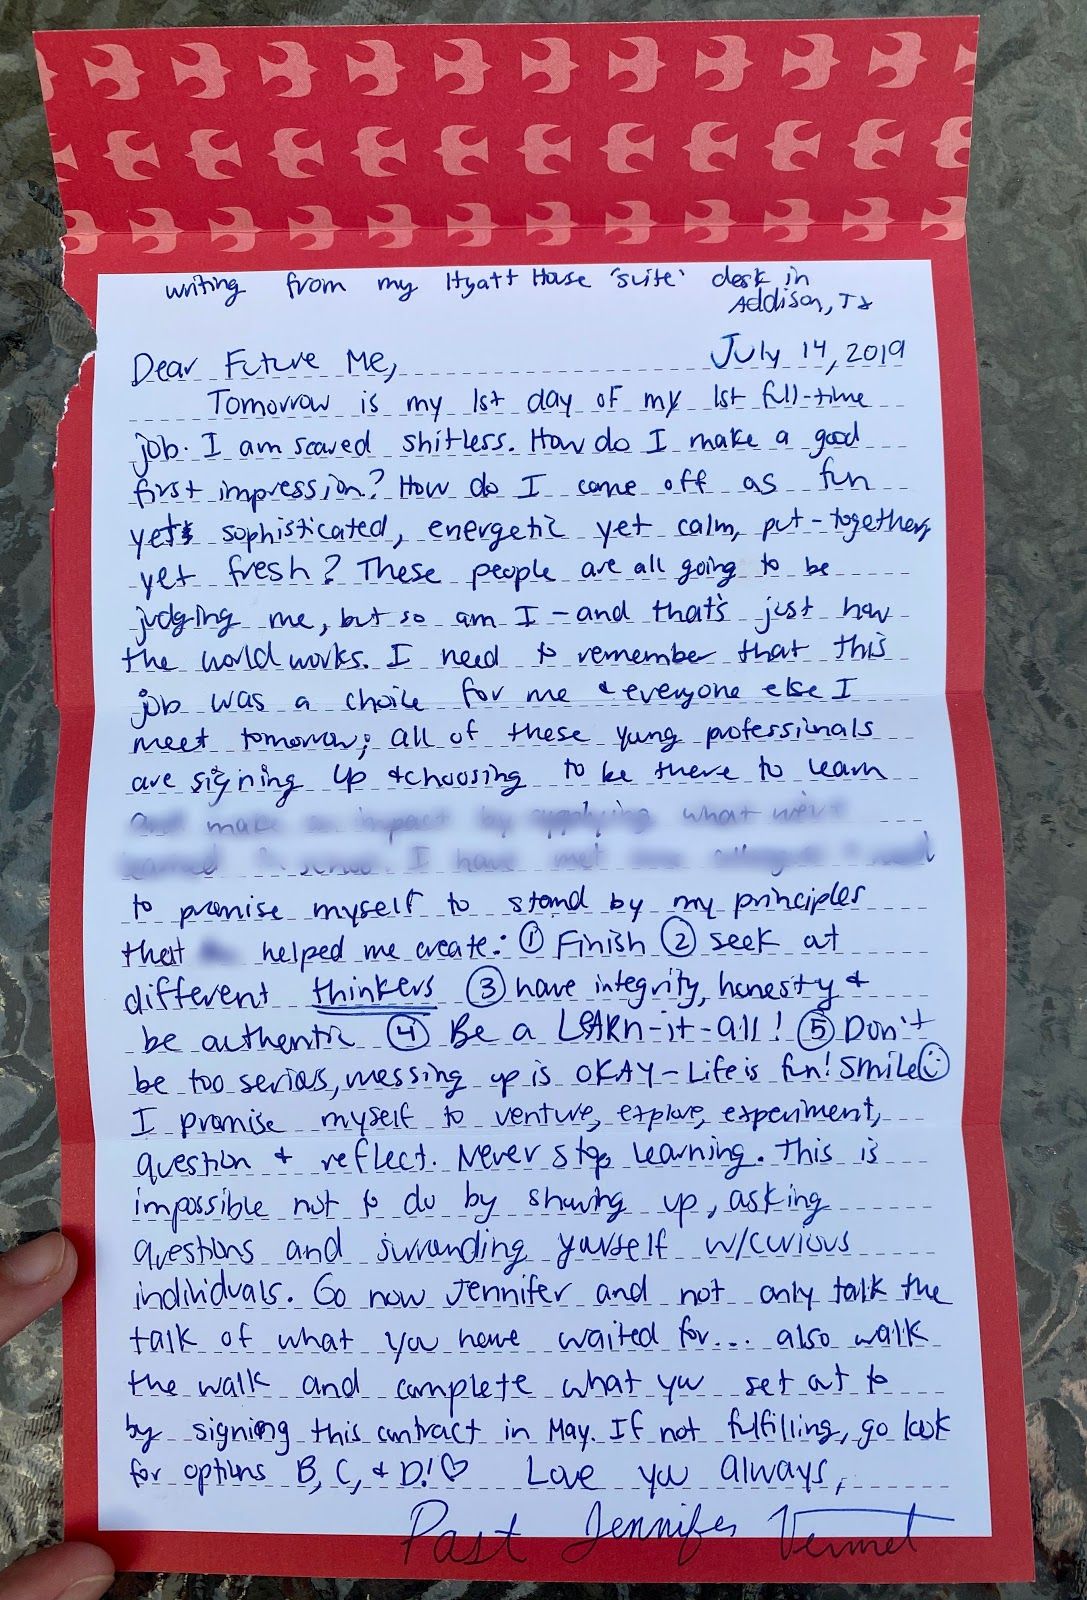 writing from my Hyatt House 'suite' desk in
Addison, TX
Dear Future Me,
July 14, 2019
Tomorrow is my 1st day of my 1st full-time
job. I am scared shitless. How do I make a good
first impression? How do I come off as fun
yet sophisticated, energetic yet calm, put-together,
yet fresh? These people are all going to be
judging me, but so am I - and that's just how
the world works. I need to remember that this
job was a choice for me & everyone else I
meet tomorrow; all of these young professionals
are signing up & choosing to be there to learn
and make an impact by applying what we've
learned in school. I have met
to promise myself to stand by my principles
that helped me create: ① Finish ② seek at
different thinkers ③ have integrity, honesty &
be authentic ④ Be a LEARn-it-all! ⑤ Don't
be too serious, messing up is OKAY - Life is fun! Smile☺
I promise myself to venture, explore, experiment,
question & reflect. Never stop learning. This is
impossible not to do by showing up, asking
questions and surrounding yourself w/curious
individuals. Go now Jennifer and not only talk the
talk of what you have waited for... also walk
the walk and complete what you set out to
by signing this contract in May. If not fulfilling, go look
for options B, C, & D! ♡ Love you always,
Past Jennifer Vermet